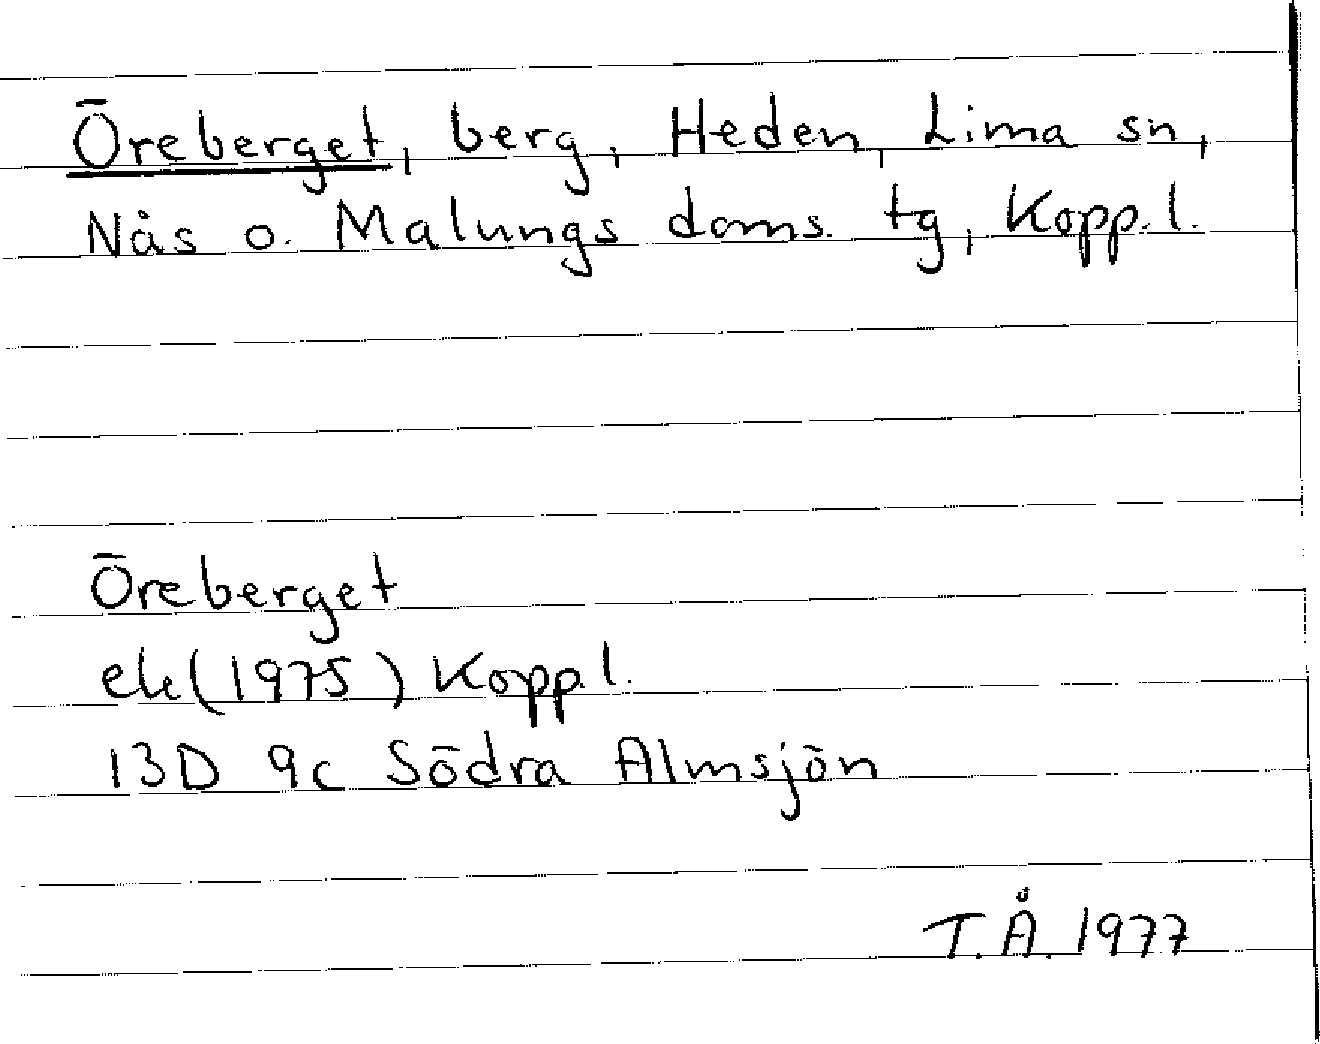 Öreberget, berg, Heden, Lima sn,
Nås o. Malungs doms. tg, Kopp.l.
Öreberget
ek(1975) Kopp.l.
13D 9c Södra Almsjön
T.Å. 1977